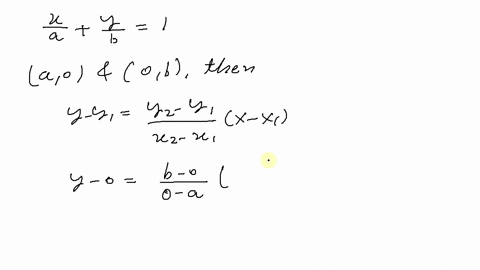 x/a + y/b = 1
(a,0) & (0,b), then
y-y₁ = (y₂-y₁)/(x₂-x₁) (x-x₁)
y-0 = (b-0)/(0-a) (